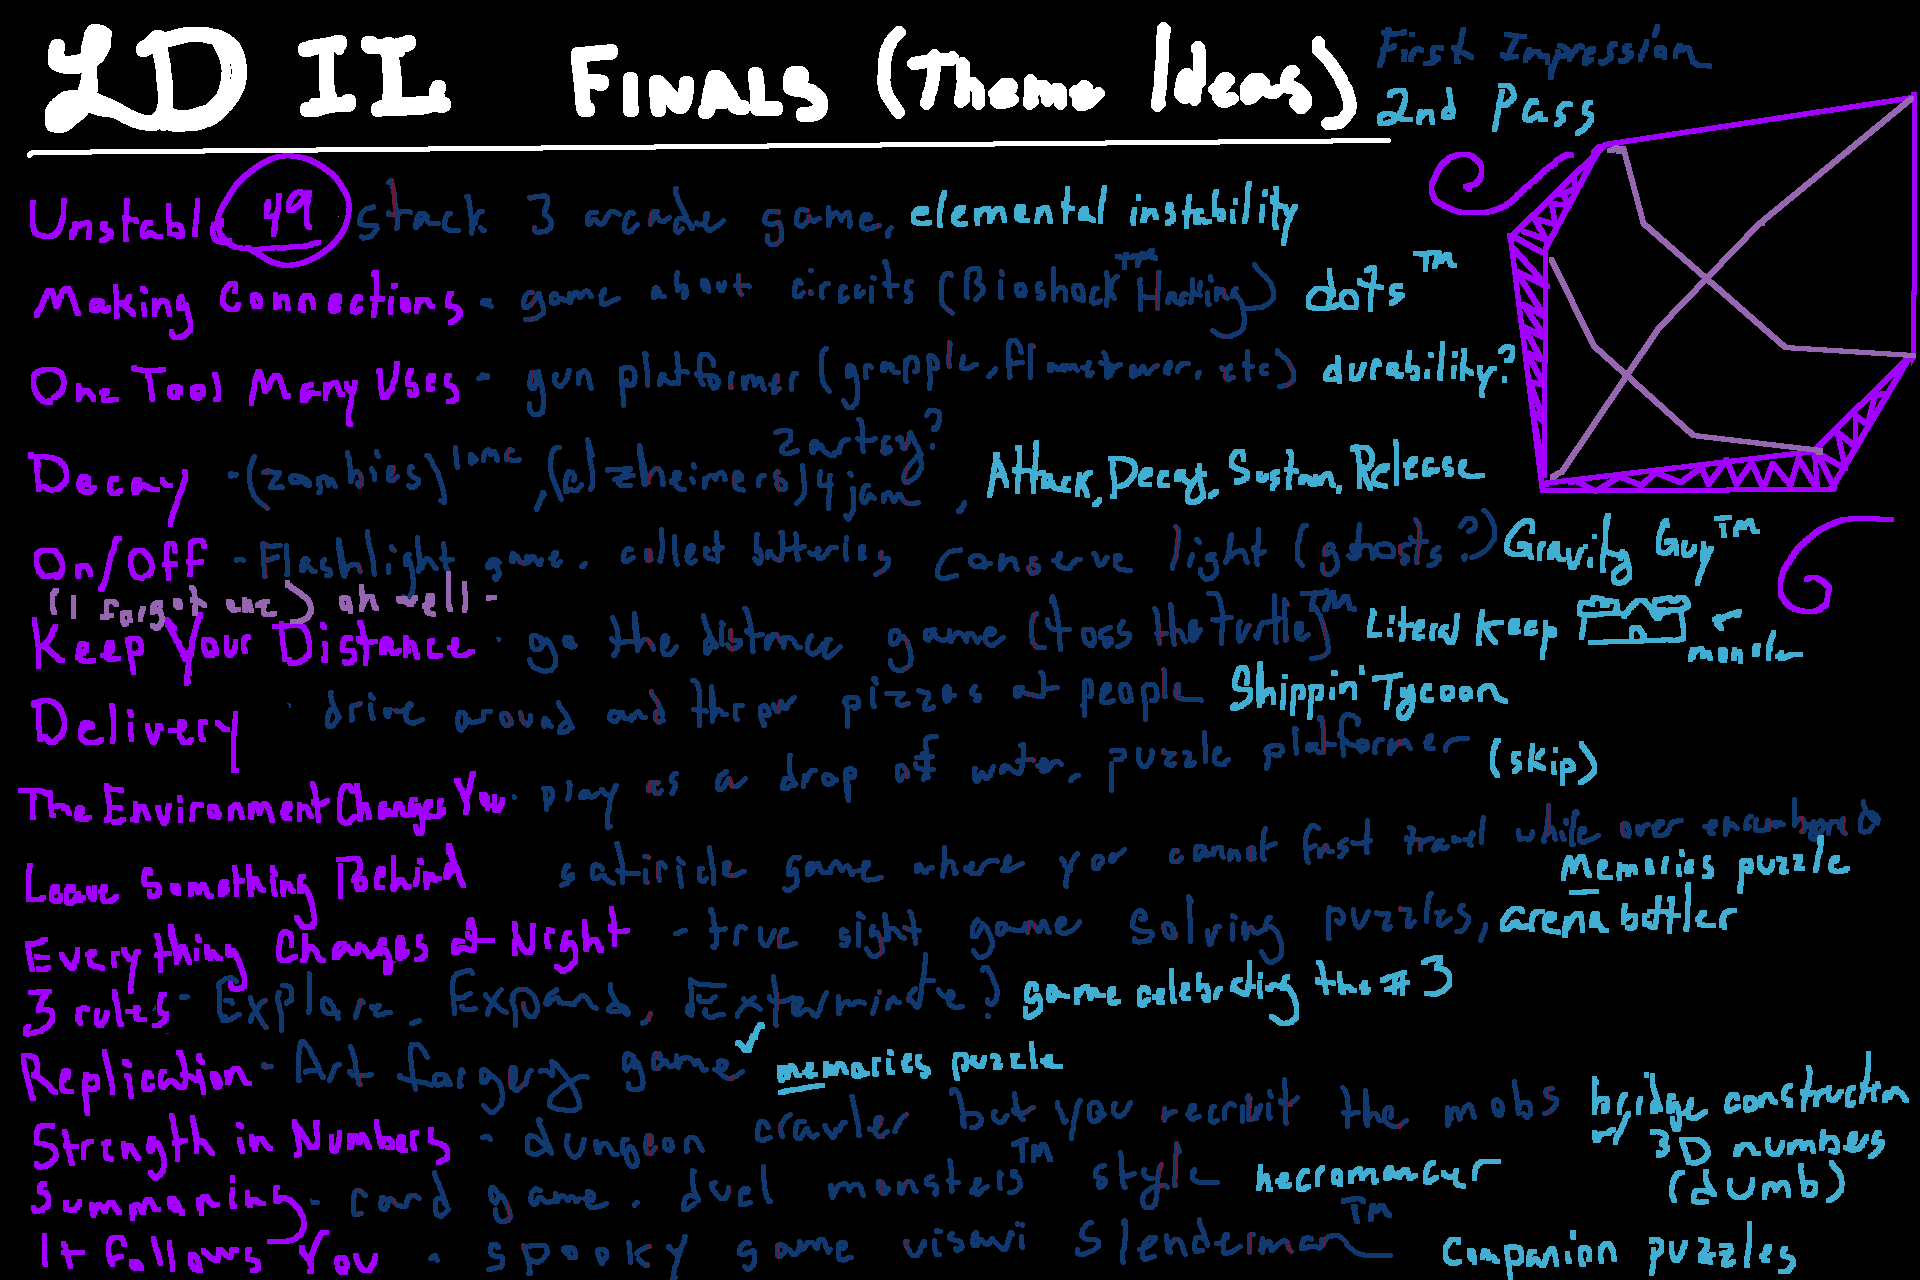 LD IL FINALS (Theme Ideas)
First Impression
2nd Pass
Unstable 49 stack 3 arcade game, elemental instability
Making Connections - game about circuits (Bioshock™ Hacking) dots™
One Tool Many Uses - gun platformer (grapple, flamethrower, etc) durability?
Decay - (zombies) lame, (alzheimers) 4 jam 2 artsy? , Attack, Decay, Sustain, Release
On/Off - Flashlight game. collect batteries conserve light (ghosts?) Gravity Guy™
(I forgot one) oh well -
Keep Your Distance - go the distance game (toss the turtle)™ Literal Keep monster
Delivery - drive around and throw pizzas at people Shippin' Tycoon
The Environment Changes You - play as a drop of water. puzzle platformer (skip)
Leave Something Behind satiricle game where you cannot fast travel while over encumbered
Memories puzzle
Everything Changes at Night - true sight game solving puzzles, arena battler
3 rules - Explore, Expand, Exterminate? game celebrating the #3
Replication - Art forgery game ✓ memories puzzle
Strength in Numbers - dungeon crawler but you recruit the mobs bridge construction
w/ 3D numbers
(dumb)
Summoning - card game. duel monsters™ style necromancer
It Follows You - spooky game visavi Slenderman™ Companion puzzles